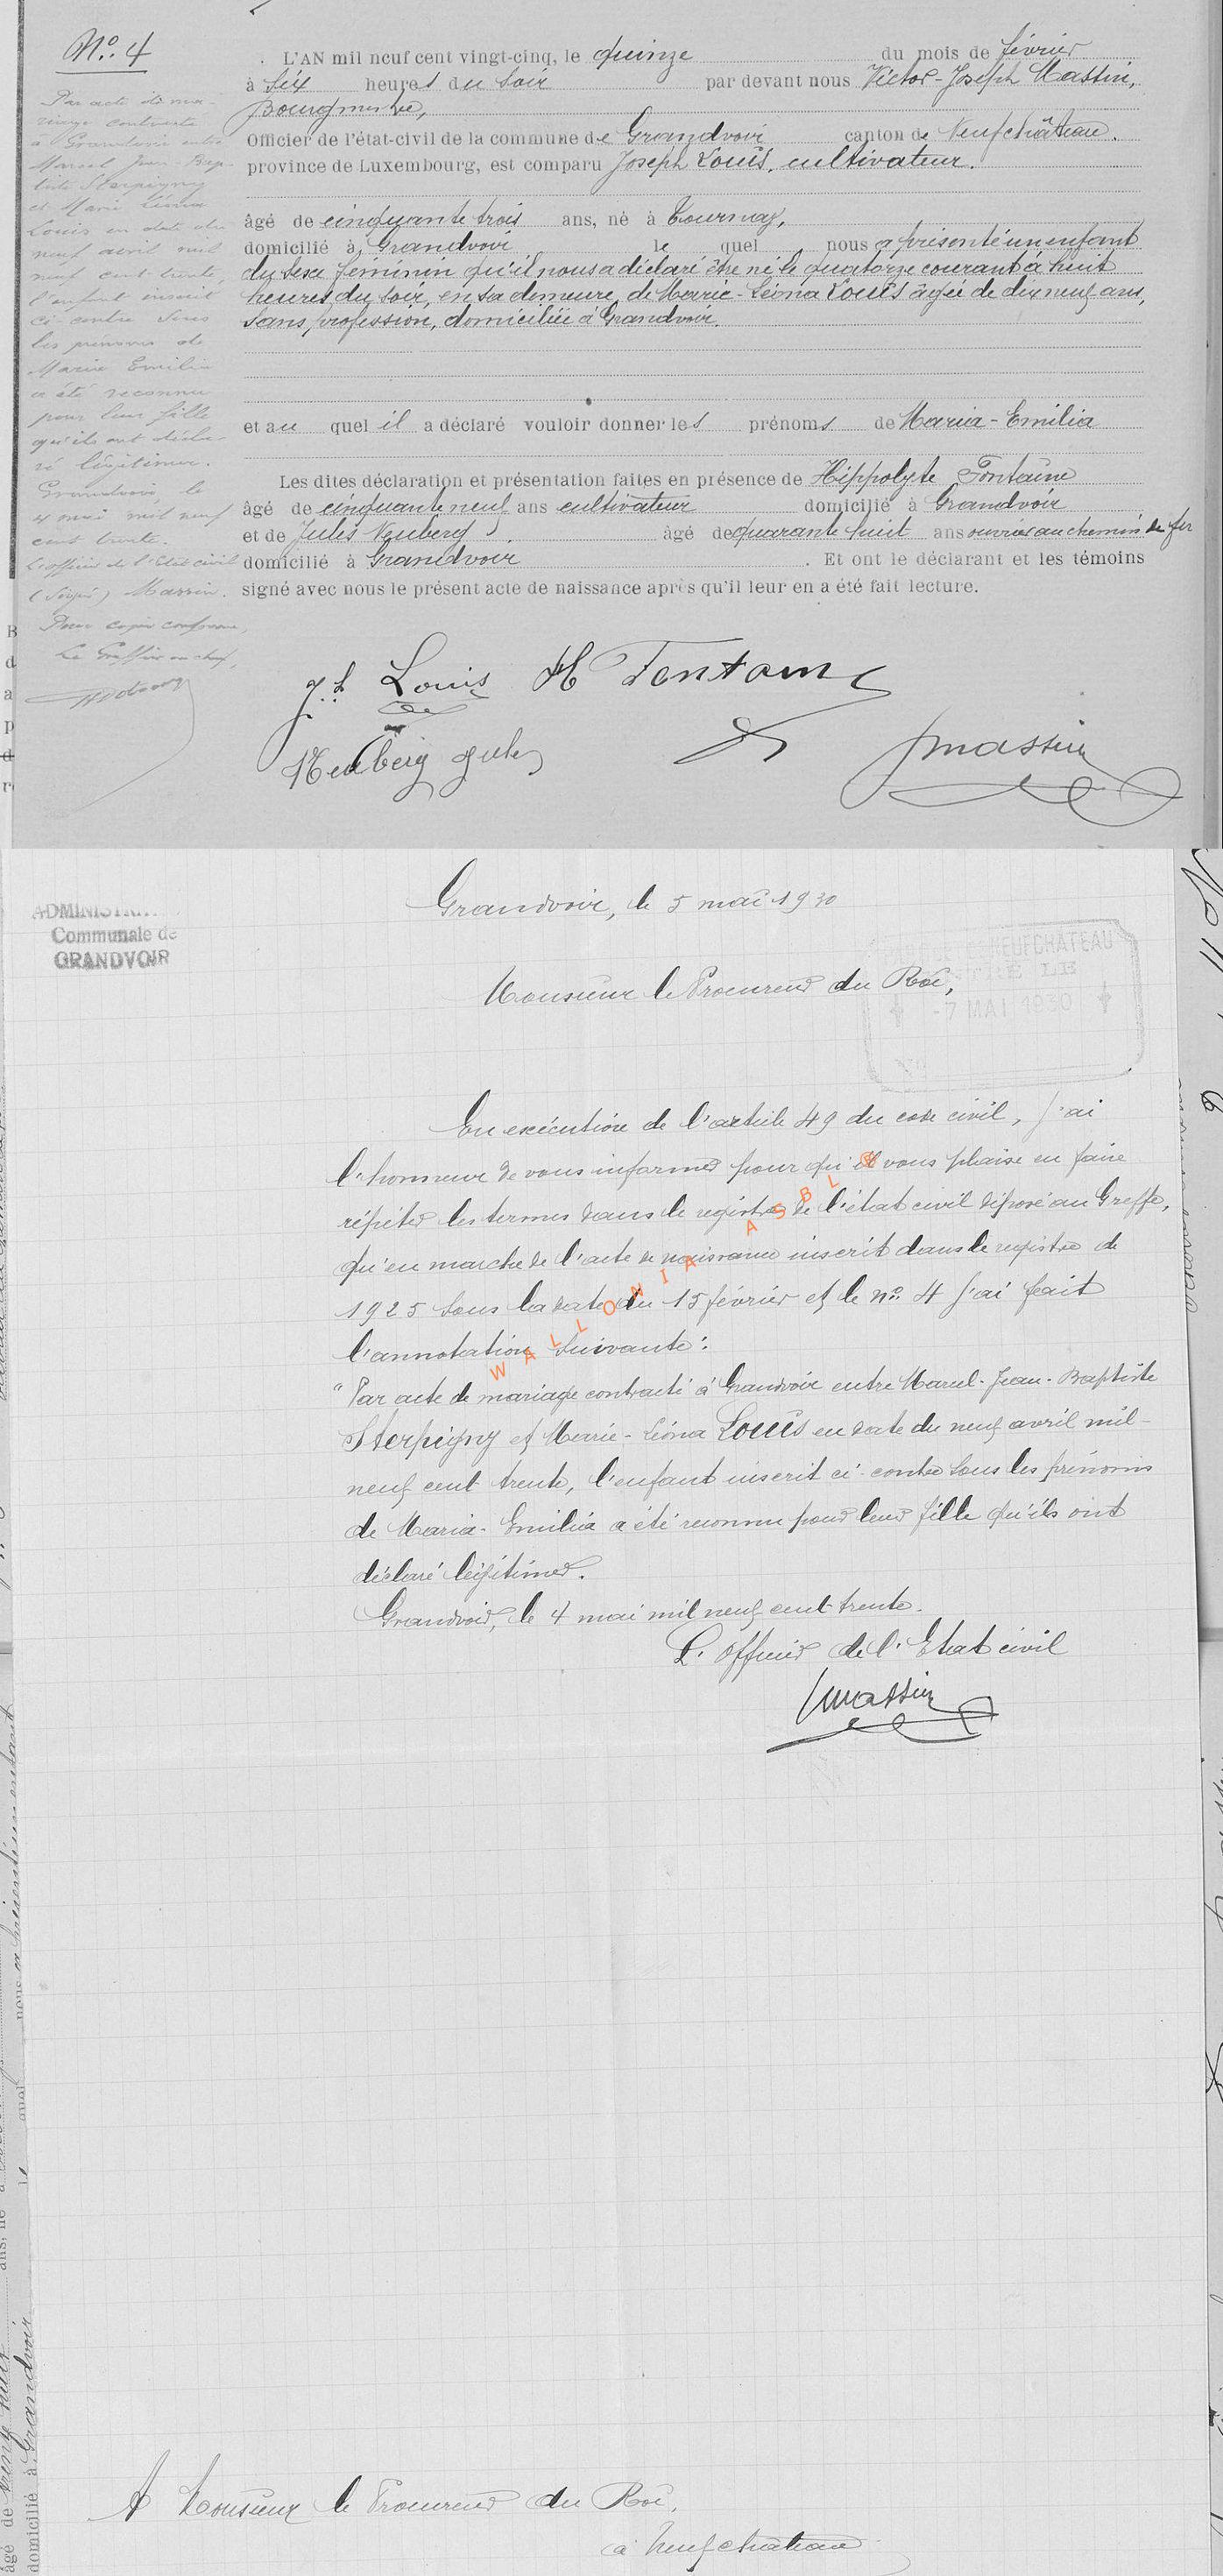 N° 4
L'AN mil neuf cent vingt-cinq, le quinze du mois de février
à six heures du soir par devant nous Victor-Joseph Massin,
Bourgmestre,
Officier de l'état-civil de la commune de Grandvoir canton de Neufchâteau.
province de Luxembourg, est comparu Joseph Louis, cultivateur.
âgé de cinquante trois ans, né à Tournay,
domicilié à Grandvoir le quel nous a présenté un enfant
du sexe féminin qu'il nous a déclaré être né le quatorze courant à huit
heures du soir, en sa demeure, de Marie-Léona Louis âgée de dix neuf ans,
sans profession, domiciliée à Grandvoir.
et au quel il a déclaré vouloir donner les prénoms de Maria-Emilia
Les dites déclaration et présentation faites en présence de Hippolyte Fontaine
âgé de cinquante neuf ans cultivateur domicilié à Grandvoir
et de Jules Neuberg âgé de quarante huit ans ouvrier au chemin de fer
domicilié à Grandvoir . Et ont le déclarant et les témoins
signé avec nous le présent acte de naissance après qu'il leur en a été fait lecture.
Par acte de ma-
riage contracté
à Grandvoir entre
Marcel Jean-Bap-
tiste Sterpigny
et Marie Léona
Louis en date du
neuf avril mil
neuf cent trente
l'enfant inscrit
ci-contre sous
les prénoms de
Maria Emilia
a été reconnu
pour leur fille
qu'ils ont décla-
ré légitimer.
Grandvoir, le
4 mai mil neuf
cent trente.
L'officier de l'Etat civil
(Signé) Massin.
Pour copie conforme,
Le Greffier en chef,
J.h Louis H Fontaine
Neuberg Jules Jmassin
ADMINISTRA
Communale de
GRANDVOIR
Grandvoir, le 5 mai 1930
NEUFCHATEAU
-7 MAI 1930
Monsieur le Procureur du Roi,
En exécution de l'article 49 du code civil, j'ai
l'honneur de vous informer pour qu'il vous plaise en faire
répéter les termes dans le registre de l'état civil déposé au Greffe,
qu'en marche de l'acte de naissance inscrit dans le registre de
1925 sous la date du 15 février et le n° 4 j'ai fait
l'annotation suivante:
"Par acte de mariage contracté à Grandvoir entre Marcel-Jean-Baptiste
Sterpigny et Marie-Léona Louis en date du neuf avril mil-
neuf cent trente, l'enfant inscrit ci-contre sous les prénoms
de Maria-Emilia a été reconnu pour leur fille qu'ils ont
déclaré légitimer.
Grandvoir, le 4 mai mil neuf cent trente.
L'officier de l'Etat civil
Jmassin
WALLONIA ASBL ©
A Monsieur le Procureur du Roi,
à Neufchâteau